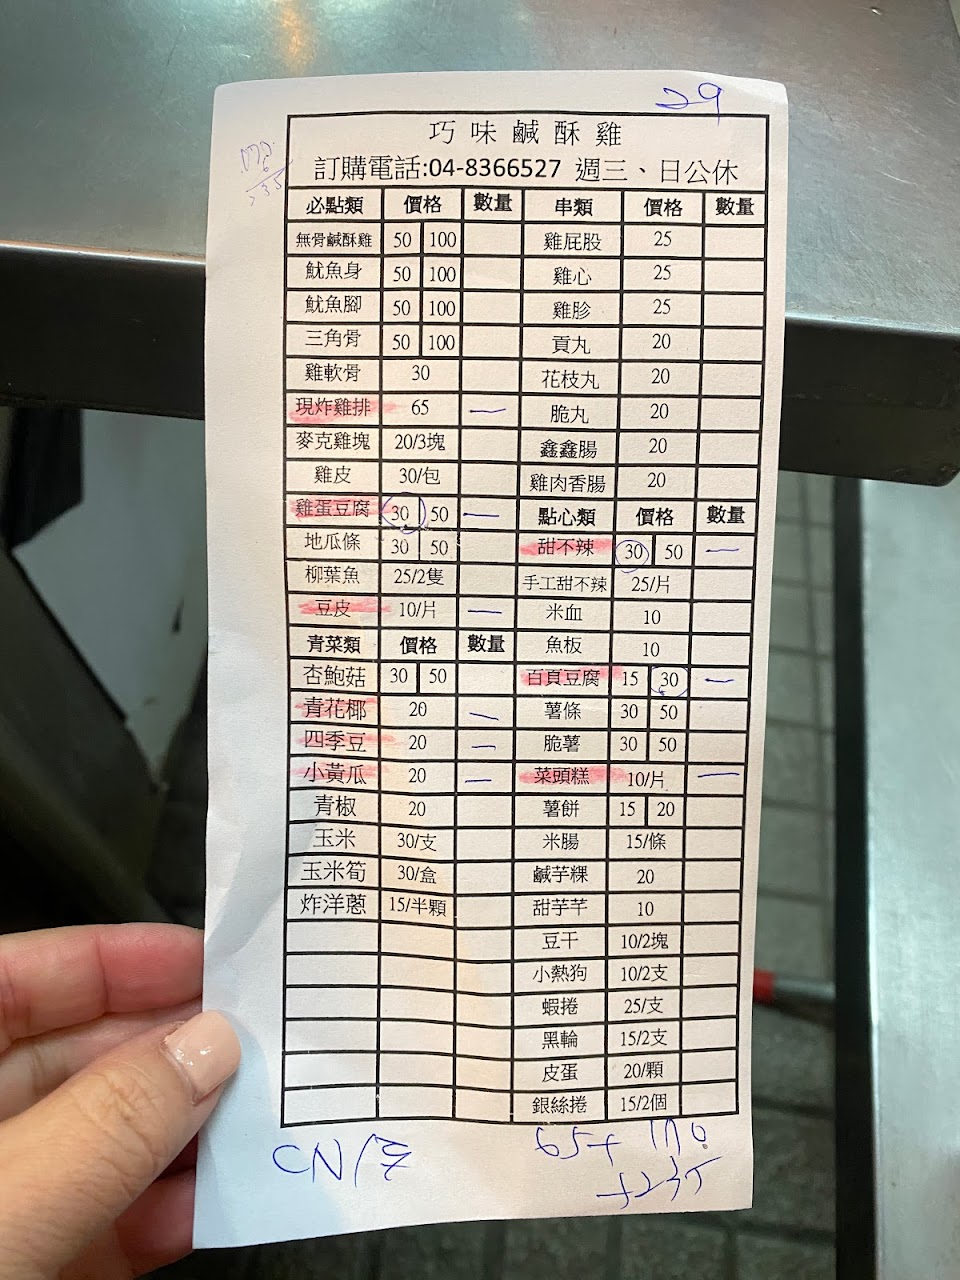 29
巧味鹹酥雞
訂購電話:04-8366527 週三、日公休
必點類 價格 數量 串類 價格 數量
無骨鹹酥雞 50 100 雞屁股 25
魷魚身 50 100 雞心 25
魷魚腳 50 100 雞胗 25
三角骨 50 100 貢丸 20
雞軟骨 30 花枝丸 20
現炸雞排 65 一 脆丸 20
麥克雞塊 20/3塊 鑫鑫腸 20
雞皮 30/包 雞肉香腸 20
雞蛋豆腐 30 50 一 點心類 價格 數量
地瓜條 30 50 甜不辣 30 50 一
柳葉魚 25/2隻 手工甜不辣 25/片
豆皮 10/片 一 米血 10
青菜類 價格 數量 魚板 10
杏鮑菇 30 50 百頁豆腐 15 30 一
青花椰 20 一 薯條 30 50
四季豆 20 一 脆薯 30 50
小黃瓜 20 一 菜頭糕 10/片 一
青椒 20 薯餅 15 20
玉米 30/支 米腸 15/條
玉米筍 30/盒 鹹芋粿 20
炸洋蔥 15/半顆 甜芋芊 10
豆干 10/2塊
小熱狗 10/2支
蝦捲 25/支
黑輪 15/2支
皮蛋 20/顆
銀絲捲 15/2個
65+170